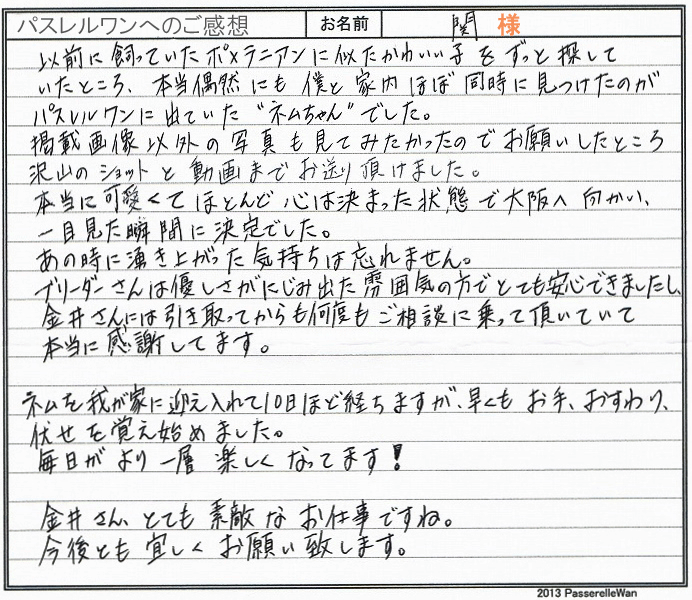 パスレルワンへのご感想 お名前 関 様
以前に飼っていたポメラニアンに似たかわいい子をずっと探して
いたところ、本当偶然にも僕と家内ほぼ同時に見つけたのが
パスレルワンに出ていた“ネムちゃん”でした。
掲載画像以外の写真も見てみたかったのでお願いしたところ
沢山のショットと動画までお送り頂けました。
本当に可愛くてほとんど心は決まった状態で大阪へ向かい、
一目見た瞬間に決定でした。
あの時に湧き上がった気持ちは忘れません。
ブリーダーさんは優しさがにじみ出た雰囲気の方でとても安心できましたし、
金井さんには引き取ってからも何度もご相談に乗って頂いていて
本当に感謝してます。
ネムを我が家に迎え入れて10日ほど経ちますが、早くもお手、おすわり、
伏せを覚え始めました。
毎日がより一層楽しくなってます!
金井さん、とても素敵なお仕事ですね。
今後とも宜しくお願い致します。
2013 PasserelleWan